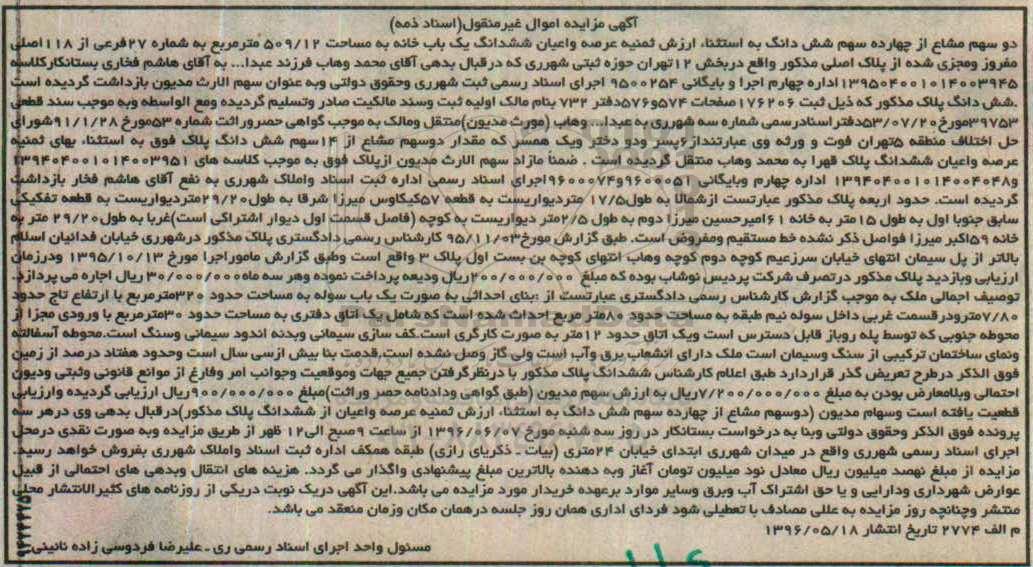 آگهی مزایده اموال غیرمنقول(اسناد ذمه)
دو سهم مشاع از چهارده سهم شش دانگ به استثناء ارزش ثمنیه عرصه واعیان ششدانگ یک باب خانه به مساحت ۵۰۹/۱۲ مترمربع به شماره ۲۷فرعی از ۱۱۸اصلی
مفروز ومجزی شده از پلاک اصلی مذکور واقع دربخش ۱۲تهران حوزه ثبتی شهرری که درقبال بدهی آقای محمد وهاب فرزند عبدا... به آقای هاشم فخاری بستانکارکلاسه
۱۳۹۵۰۴۰۰۱۰۱۴۰۰۰۳۹۴۵ اداره چهارم اجرا و بایگانی ۹۵۰۰۲۵۴ اجرای اسناد رسمی ثبت شهرری وحقوق دولتی وبه عنوان سهم الارث مدیون بازداشت گردیده است
.شش دانگ پلاک مذکور که ذیل ثبت ۱۷۶۲۰۶ صفحات ۵۷۴و۵۷۶دفتر ۷۳۲ بنام مالک اولیه ثبت وسند مالکیت صادر وتسلیم گردیده ومع الواسطه وبه موجب سند قطعی
۳۹۷۵۳مورخ۵۳/۰۷/۲۰دفتراسنادرسمی شماره سه شهرری به عبدا... وهاب (مورث مدیون)منتقل ومالک به موجب گواهی حصروراثت شماره ۵۳مورخ ۹۱/۱/۲۸شورای
حل اختلاف منطقه ۵تهران فوت و ورثه وی عبارتنداز۶پسر ودو دختر ویک همسر که مقدار دوسهم مشاع از ۱۴سهم شش دانگ پلاک فوق به استثناء بهای ثمنیه
عرصه واعیان ششدانگ پلاک قهرا به محمد وهاب منتقل گردیده است . ضمناً مازاد سهم الارث مدیون ازپلاک فوق به موجب کلاسه های ۱۳۹۴۰۴۰۰۱۰۱۴۰۰۳۹۵۱
و۱۳۹۴۰۴۰۰۱۰۱۴۰۰۴۰۴۸ اداره چهارم وبایگانی ۹۶۰۰۰۵۱و۹۶۰۰۰۷۴اجرای اسناد رسمی اداره ثبت اسناد واملاک شهرری به نفع آقای هاشم فخار بازداشت
گردیده است. حدود اربعه پلاک مذکور عبارتست ازشمالا به طول۱۷/۵ متردیواریست به قطعه ۵۷کیکاوس میرزا شرقا به طول۲۹/۲۰متردیواریست به قطعه تفکیکی
سابق جنوبا اول به طول ۱۵متر به خانه ۶۱امیرحسین میرزا دوم به طول ۲/۵متر دیواریست به کوچه (فاصل قسمت اول دیوار اشتراکی است)غربا به طول۲۹/۲۰ متر به
خانه ۵۹اکبر میرزا فواصل ذکر نشده خط مستقیم ومفروض است. طبق گزارش مورخ۹۵/۱۱/۰۳ کارشناس رسمی دادگستری پلاک مذکور درشهرری خیابان فدائیان اسلام
بالاتر از پل سیمان انتهای خیابان سرزعیم کوچه دوم کوچه وهاب انتهای کوچه بن بست اول پلاک ۳ واقع است وطبق گزارش ماموراجرا مورخ ۱۳۹۵/۱۰/۱۳ ودرزمان
ارزیابی وبازدید پلاک مذکور درتصرف شرکت پردیس نوشاب بوده که مبلغ ۲۰۰/۰۰۰/۰۰۰ریال ودیعه پرداخت نموده وهر سه ماه۳۰/۰۰۰/۰۰۰ ریال اجاره می پردازد.
توصیف اجمالی ملک به موجب گزارش کارشناس رسمی دادگستری عبارتست از :بنای احداثی به صورت یک باب سوله به مساحت حدود ۳۲۰مترمربع با ارتفاع تاج حدود
۷/۸۰مترودرقسمت غربی داخل سوله نیم طبقه به مساحت حدود ۸۰متر مربع احداث شده است که شامل یک اتاق دفتری به مساحت حدود ۳۰مترمربع با ورودی مجزا از
محوطه جنوبی که توسط پله روباز قابل دسترس است ویک اتاق حدود ۱۲متر به صورت کارگری است.کف سازی سیمانی وبدنه اندود سیمانی وسنگ است.محوطه آسفالته
ونمای ساختمان ترکیبی از سنگ وسیمان است ملک دارای انشعاب برق وآب است ولی گاز وصل نشده است.قدمت بنا بیش ازسی سال است وحدود هفتاد درصد از زمین
فوق الذکر درطرح تعریض گذر قراردارد طبق اعلام کارشناس ششدانگ پلاک مذکور با درنظرگرفتن جمیع جهات وموقعیت وجوانب امر وفارغ از موانع قانونی وثبتی ودیون
احتمالی وبلامعارض بودن به مبلغ ۷/۲۰۰/۰۰۰/۰۰۰ریال به ارزش سهم مدیون (طبق گواهی ودادنامه حصر وراثت)مبلغ ۹۰۰/۰۰۰/۰۰۰ریال ارزیابی گردیده وارزیابی
قطعیت یافته است وسهام مدیون (دوسهم مشاع از چهارده سهم شش دانگ به استثناء ارزش ثمنیه عرصه واعیان از ششدانگ پلاک مذکور)درقبال بدهی وی درهر سه
پرونده فوق الذکر وحقوق دولتی وبنا به درخواست بستانکار در روز سه شنبه مورخ ۱۳۹۶/۰۶/۰۷ از ساعت ۹صبح الی۱۲ ظهر از طریق مزایده وبه صورت نقدی درمحل
اجرای اسناد رسمی شهرری واقع در میدان شهرری ابتدای خیابان ۲۴متری (بیات ـ ذکریای رازی) طبقه همکف اداره ثبت اسناد واملاک شهرری بفروش خواهد رسید.
مزایده از مبلغ نهصد میلیون ریال معادل نود میلیون تومان آغاز وبه دهنده بالاترین مبلغ پیشنهادی واگذار می گردد. هزینه های انتقال وبدهی های احتمالی از قبیل
عوارض شهرداری ودارایی و یا حق اشتراک آب وبرق وسایر موارد برعهده خریدار مورد مزایده می باشد.این آگهی دریک نوبت دریکی از روزنامه های کثیرالانتشار محلی
منتشر وچنانچه روز مزایده به عللی مصادف با تعطیلی شود فردای اداری همان روز جلسه درهمان مکان وزمان منعقد می باشد.
م الف ۲۷۷۴ تاریخ انتشار ۱۳۹۶/۰۵/۱۸
مسئول واحد اجرای اسناد رسمی ری ـ علیرضا فردوسی زاده نائینی